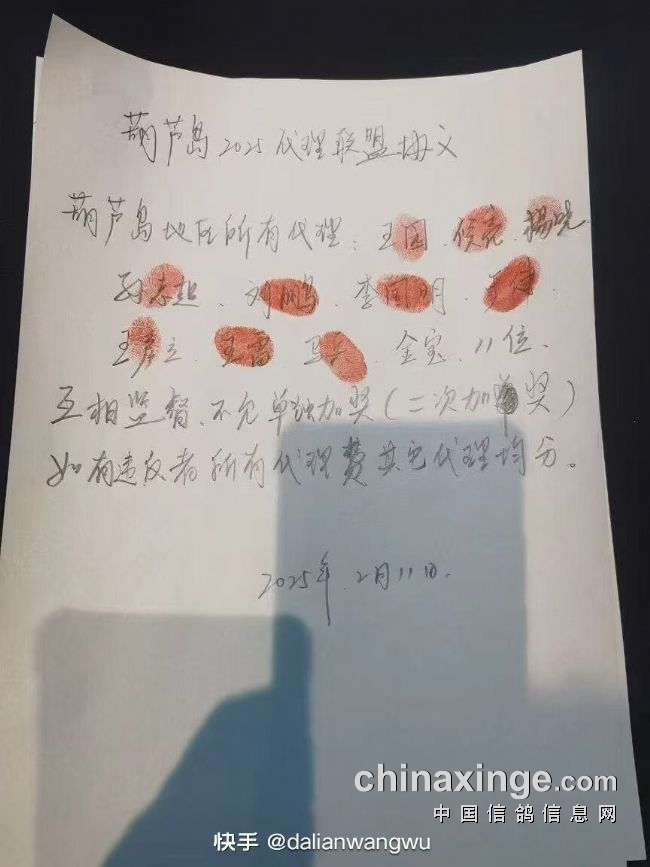 葫芦岛2025代理联盟协议
葫芦岛地区所有代理：王国、侯亮、杨晓
孙志超、刘鹏、李国明、
王彦立、王雷、马、金宝、11位、
互相监督、不允单独加奖（二次加奖）
如有违反者所有代理费其它代理均分。
2025年2月11日.
chinaxinge.com
中国信鸽信息网
快手 @dalianwangwu